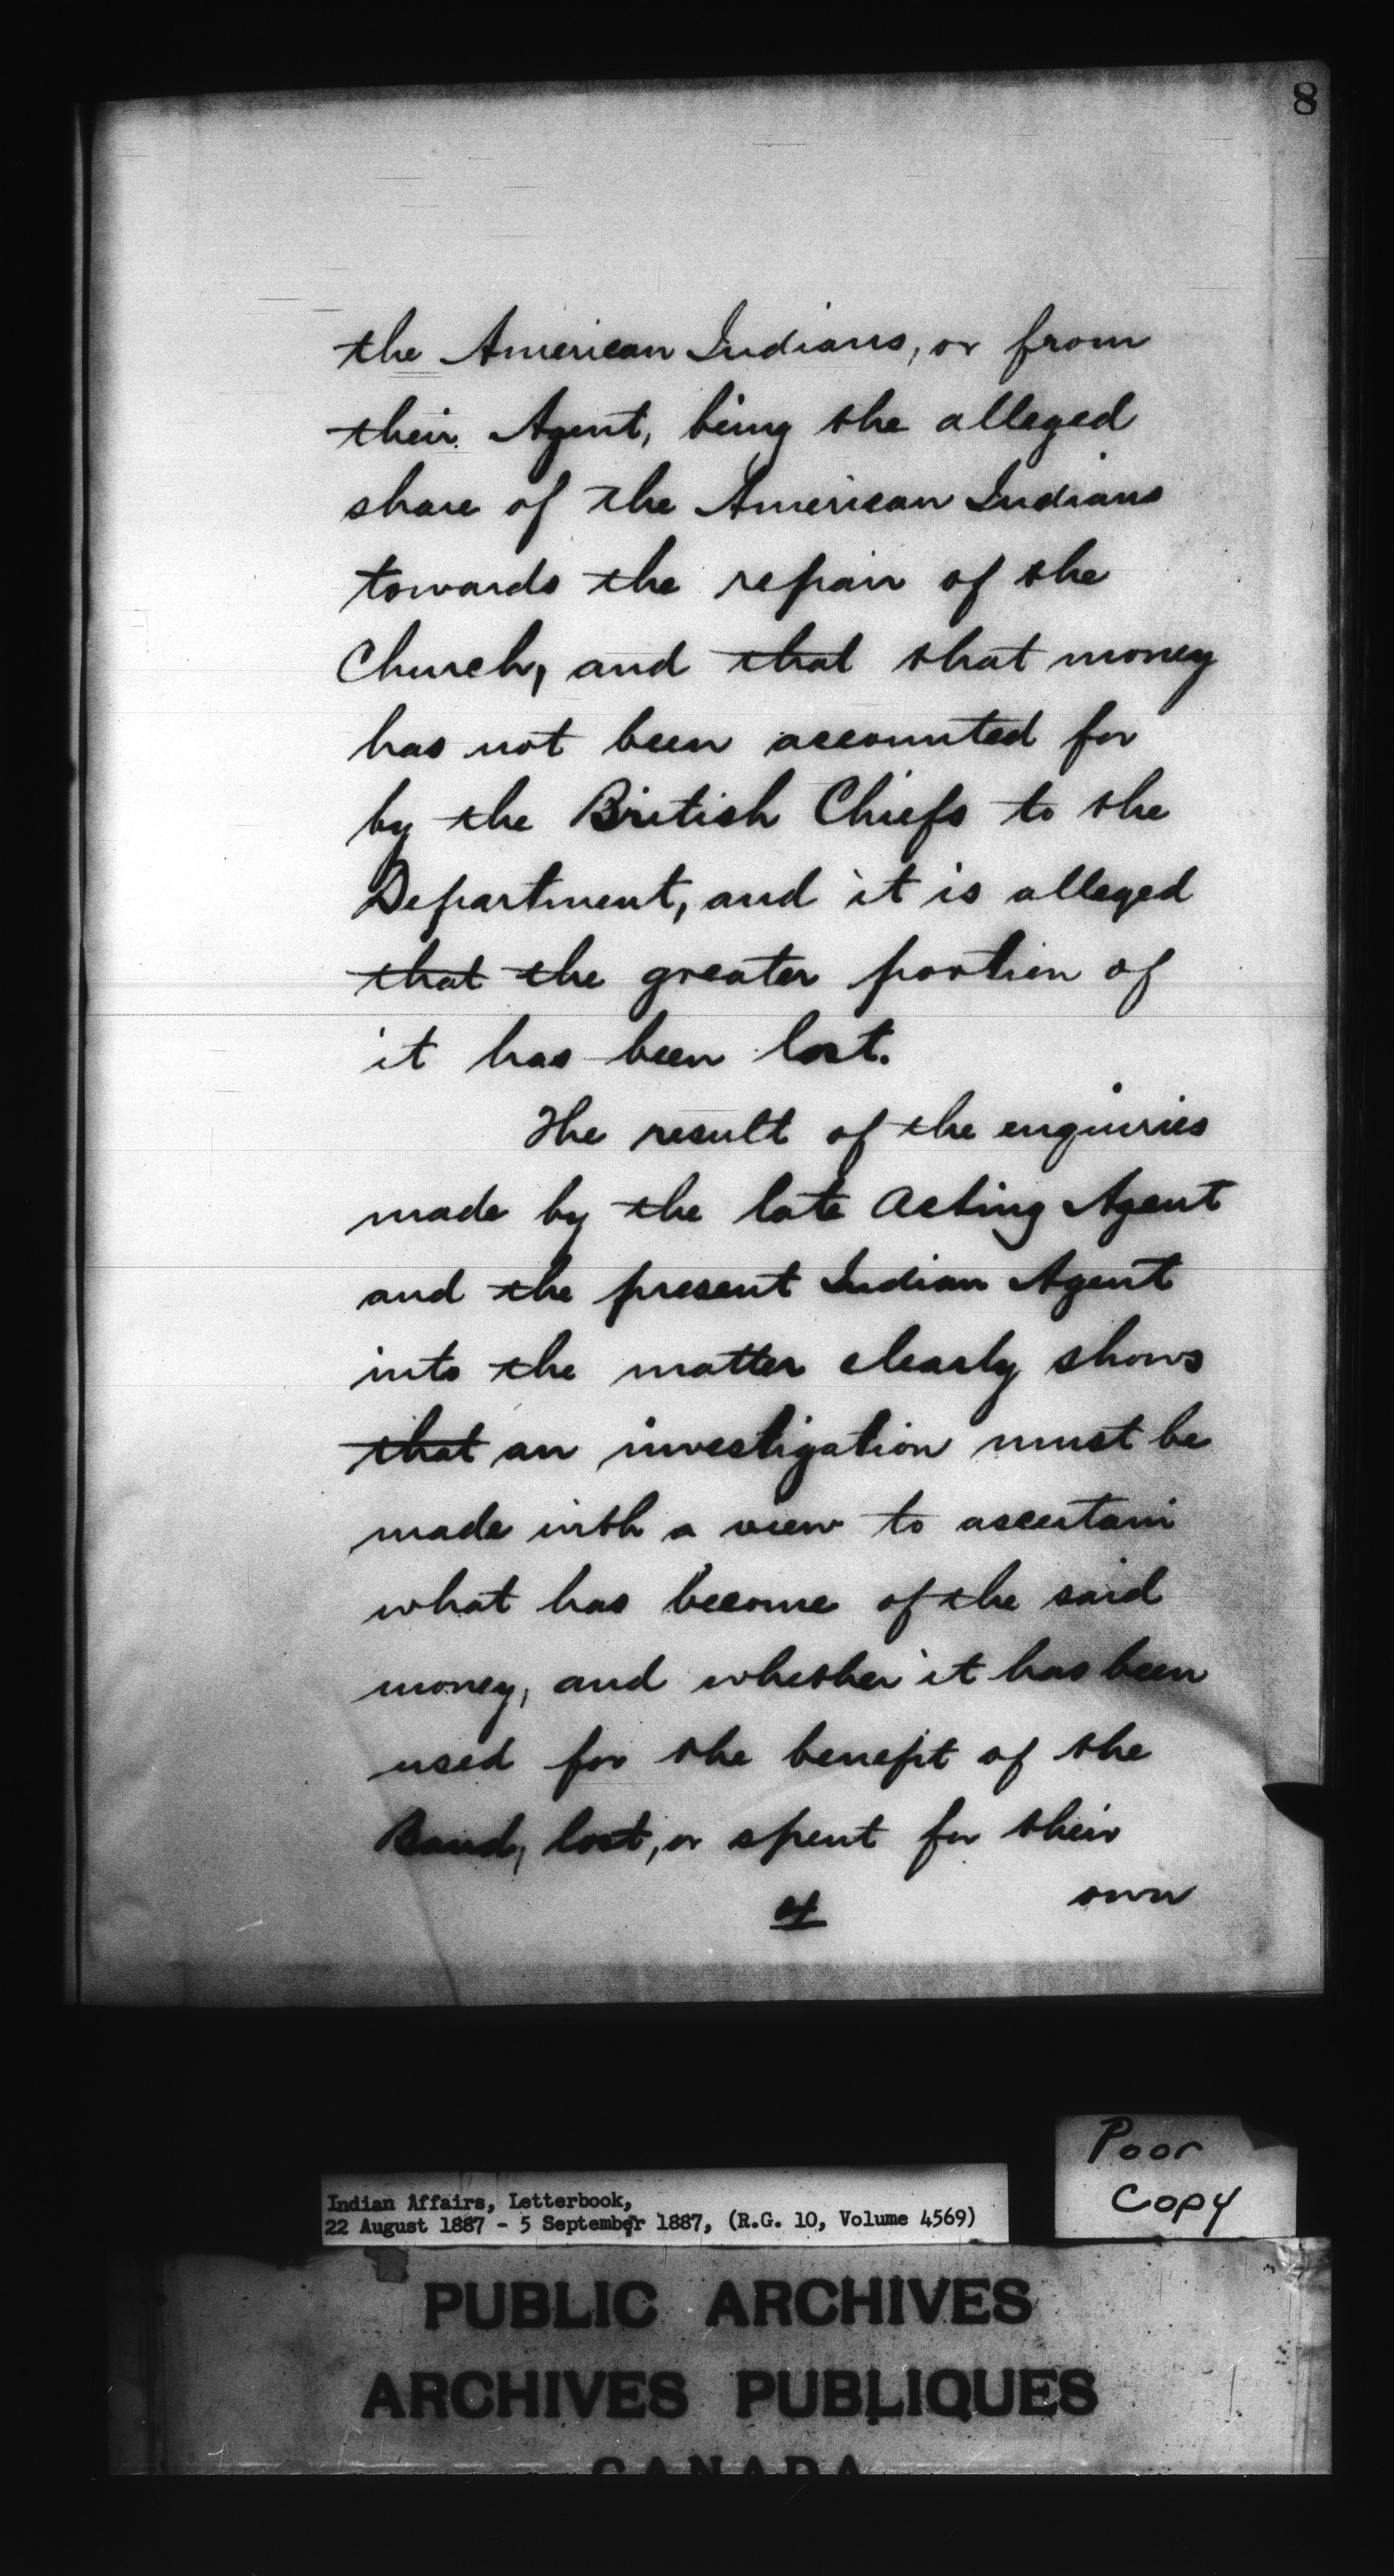 8
the American Indians, or from
their Agent, being the alleged
share of the American Indians
towards the repair of the
Church, and that that money
has not been accounted for
by the British Chiefs to the
Department, and it is alleged
that the greater portion of
it has been lost.
The result of the enquiries
made by the late Acting Agent
and the present Indian Agent
into the matter clearly shows
that an investigation must be
made with a view to ascertain
what has become of the said
money, and whether it has been
used for the benefit of the
Band, lost, or spent for their
own
Poor
Copy
Indian Affairs, Letterbook,
22 August 1887 - 5 September 1887, (R.G. 10, Volume 4569)
PUBLIC ARCHIVES
ARCHIVES PUBLIQUES
CANADA